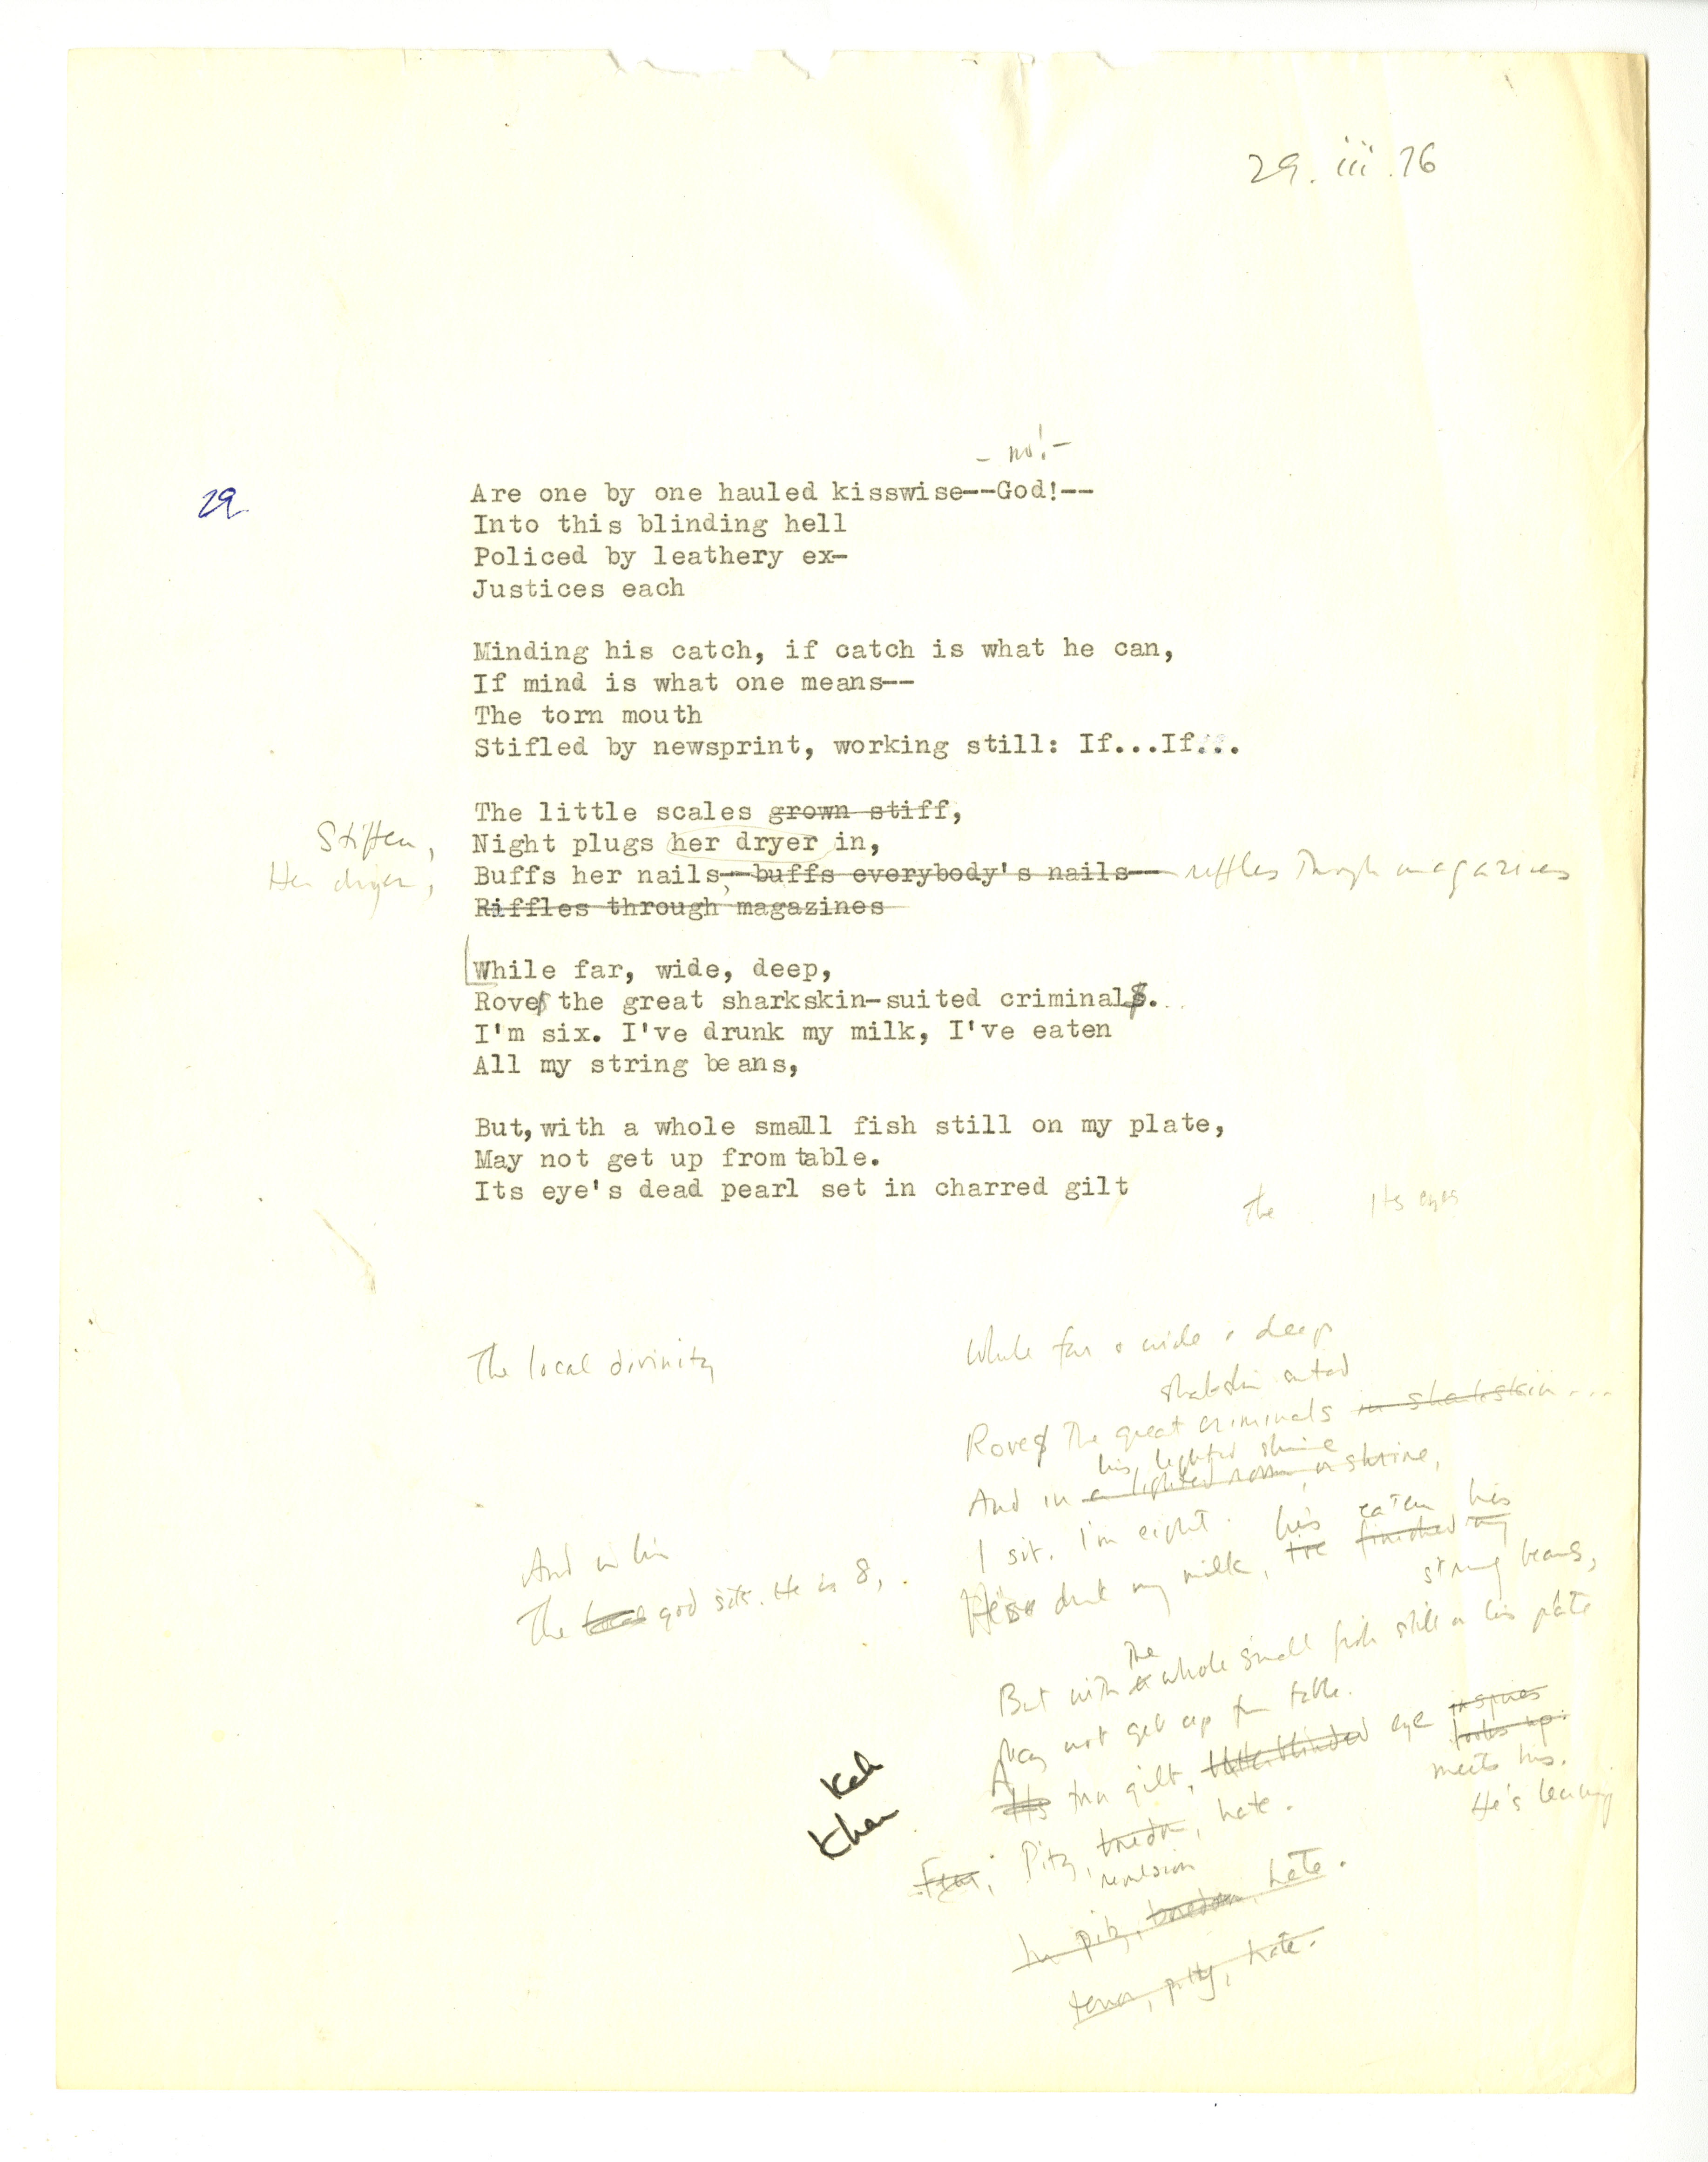 29. iii .76
- no! -
29
Are one by one hauled kisswise--God!--
Into this blinding hell
Policed by leathery ex-
Justices each
Minding his catch, if catch is what he can,
If mind is what one means--
The torn mouth
Stifled by newsprint, working still: If...If...
The little scales grown stiff,
Stiffen,
Night plugs her dryer in,
Her dryer,
Buffs her nails,--buffs everybody's nails-- riffles through magazines
Riffles through magazines
While far, wide, deep,
Roves the great sharkskin-suited criminals...
I'm six. I've drunk my milk, I've eaten
All my string beans,
But, with a whole small fish still on my plate,
May not get up from table.
Its eye's dead pearl set in charred gilt
The Its eyes
The local divinity
While far & wide & deep
sharkskin suited
Roves the great criminals in sharkskin...
his lighted shrine
And in a lighted room, a shrine,
I sit. I'm eight.
his eaten his
He's drunk my milk, I've finished my
string beans,
And in his
The local god sits. He is 8,
The
But with a whole small fish still on his plate
May not get up from table.
Its torn gilt, little blinded eye inspires
looks up.
meets his.
He's learning
Fear, Pity, boredom, hate.
revulsion
In pity, boredom, hate.
terror, pity, hate.
Keh
Khan